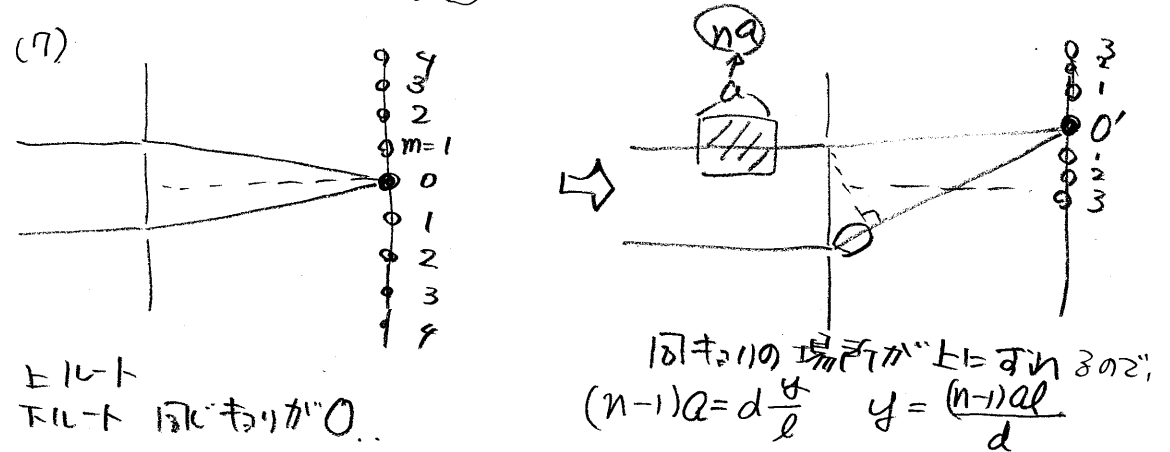 (7)
4
3
2
m=1
0
1
2
3
4
上ルート
下ルート 同じキョリが0..
na
a
3
2
1
0'
1
2
3
同キョリの場所が上にずれるので,
(n-1)a=d y/l y=(n-1)al/d